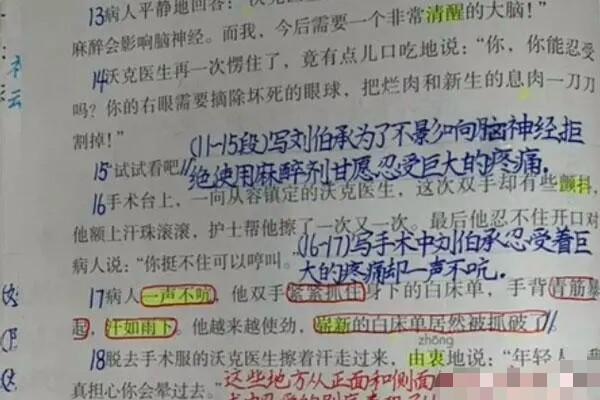 13病人平静地回答：“沃克医
麻醉会影响脑神经。而我，今后需要一个非常清醒的大脑！”
14沃克医生再一次愣住了，竟有点儿口吃地说：“你，你能忍受
吗？你的右眼需要摘除坏死的眼球，把烂肉和新生的息肉一刀刀
割掉！”
(11-15段)写刘伯承为了不影响脑神经拒
15“试试看吧。”
绝使用麻醉剂甘愿忍受巨大的疼痛.
16手术台上，一向从容镇定的沃克医生，这次双手却有些颤抖，
他额上汗珠滚滚，护士帮他擦了一次又一次。最后他忍不住开口对
病人说：“你挺不住可以哼叫。”
(16-17)写手术中刘伯承忍受着巨
大的疼痛却一声不吭.
17病人一声不吭，他双手紧紧抓住身下的白床单，手背青筋暴
起，汗如雨下。他越来越使劲，崭新的白床单居然被抓破了。
zhōng
18脱去手术服的沃克医生擦着汗走过来，由衷地说：“年轻人，我
真担心你会晕过去。”
这些地方从正面和侧面